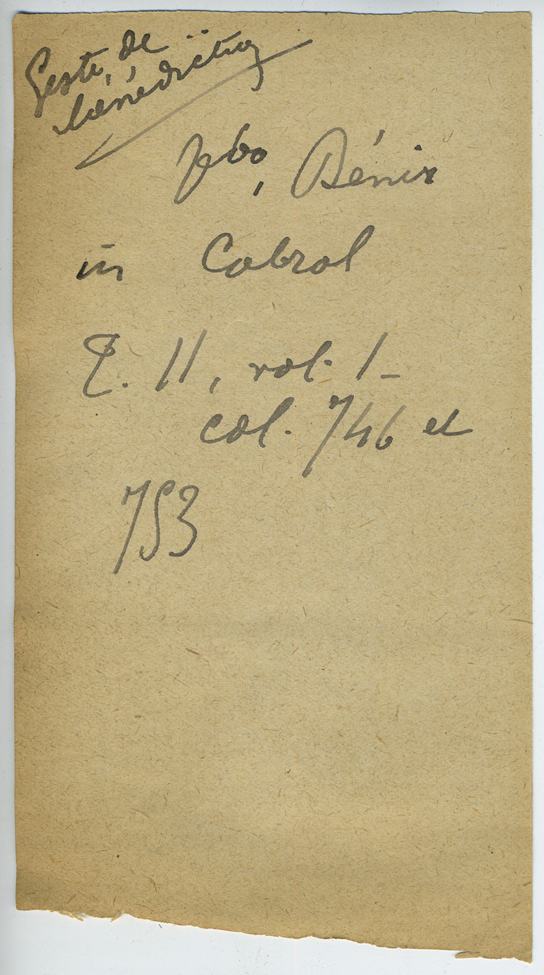 Geste de
bénédiction
Vbo, Bénir
in Cabrol
T. II, vol. 1 -
col. 746 et
753